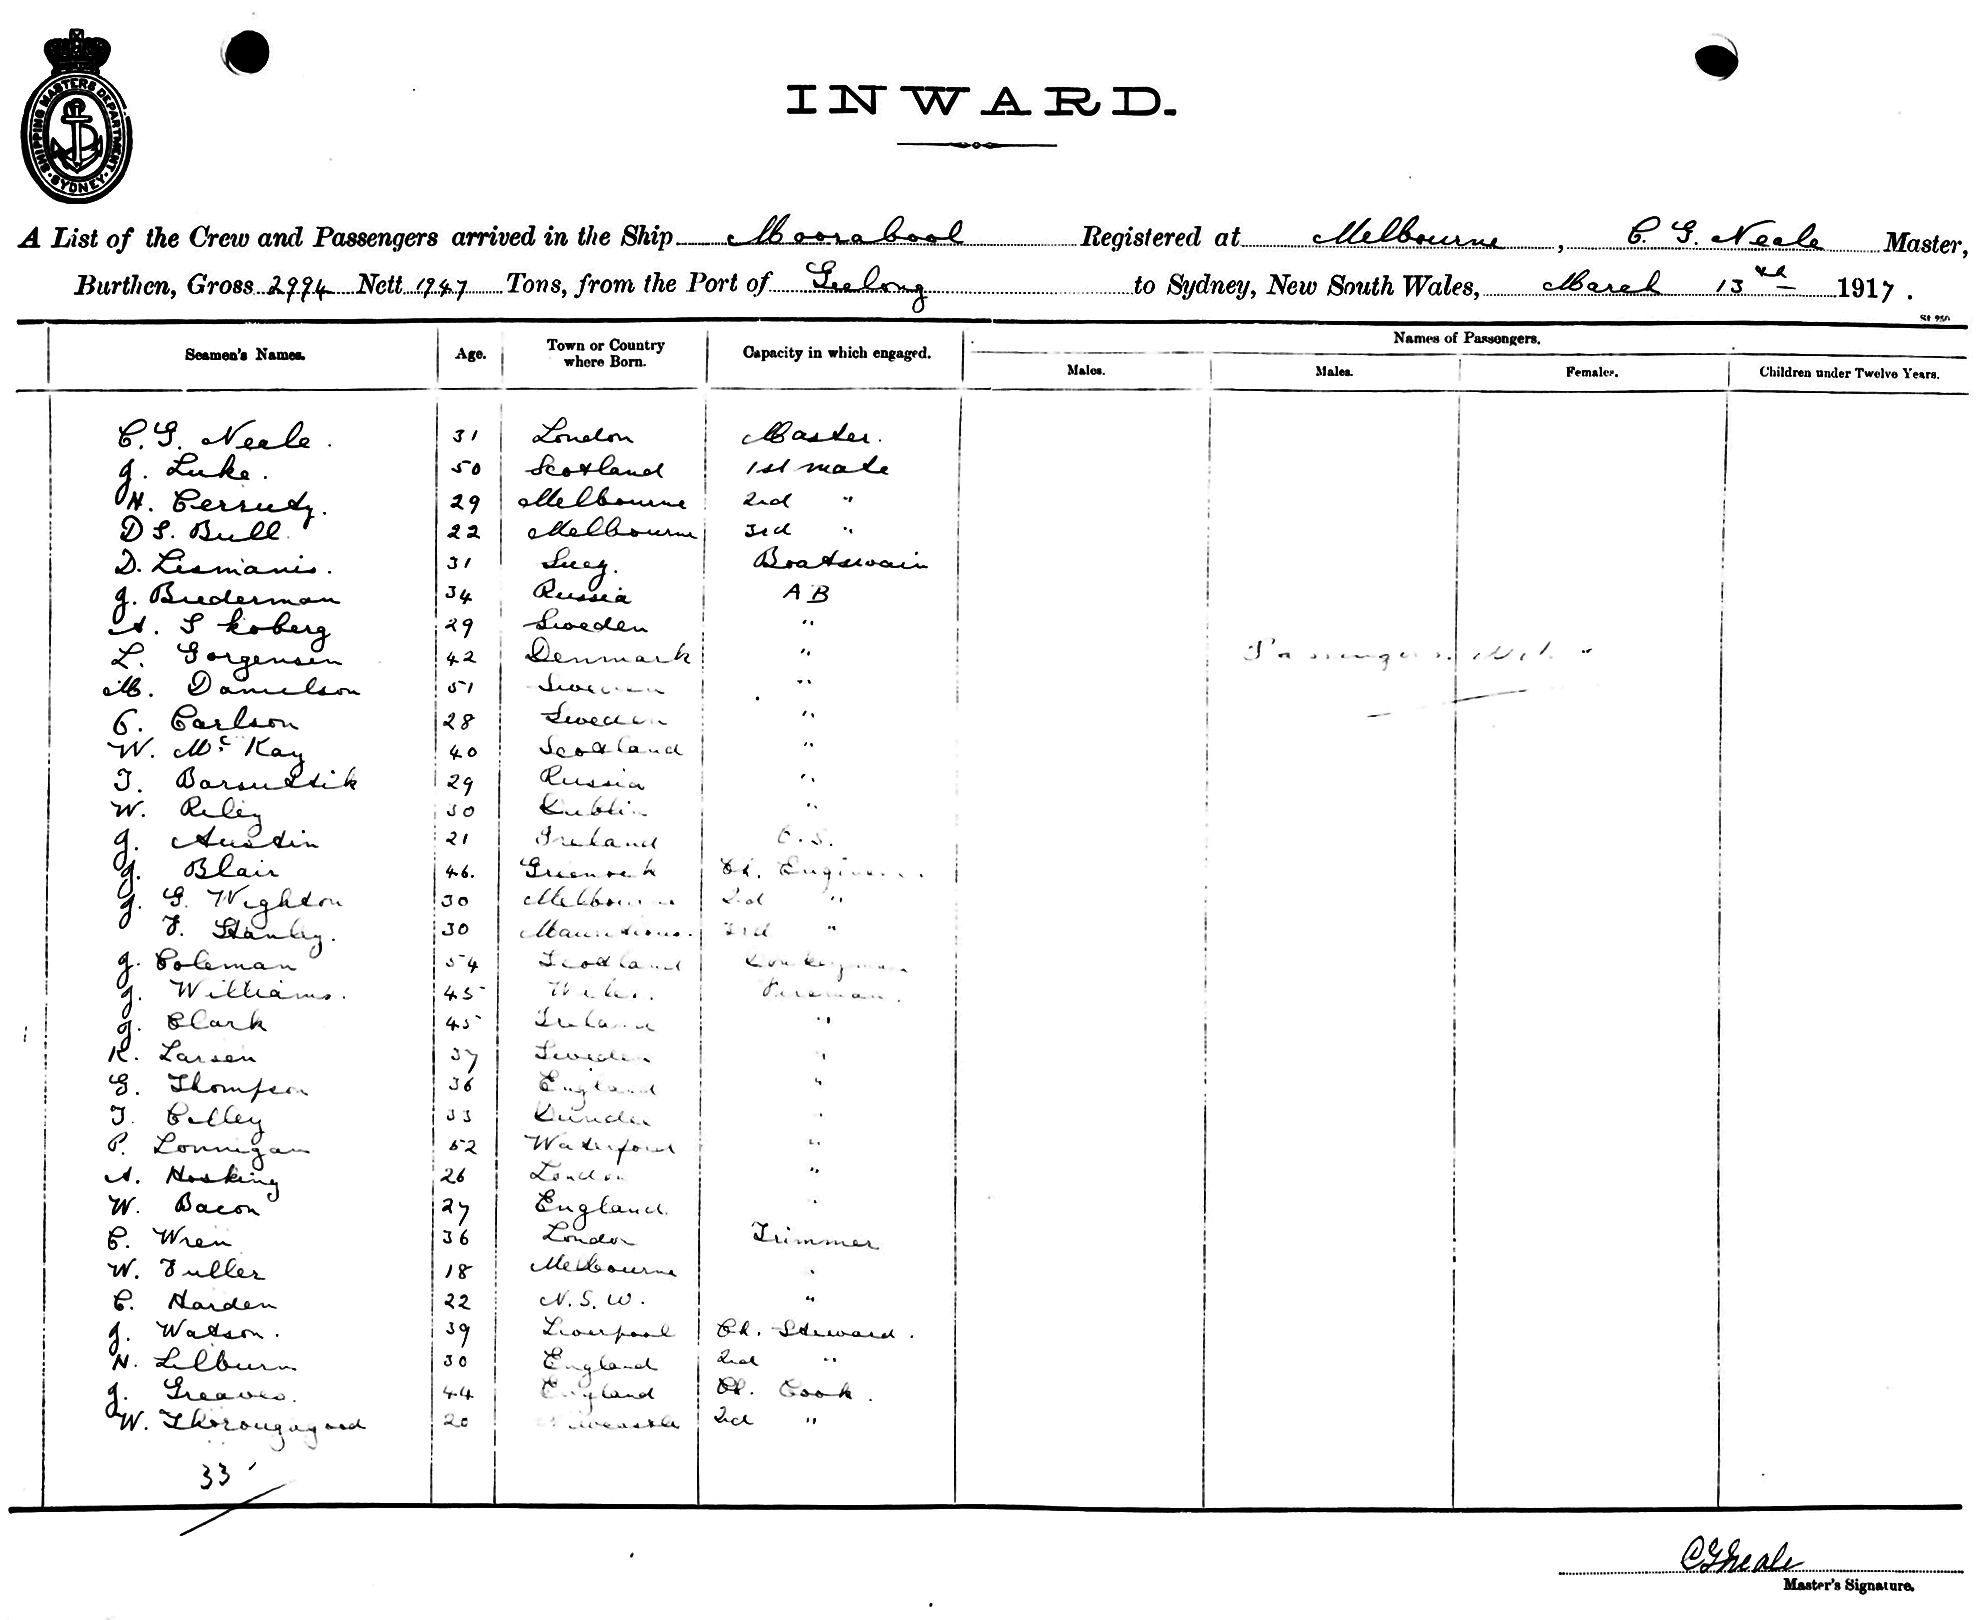 SHIPPING MASTERS DEPARTMENT
SYDNEY
INWARD.
A List of the Crew and Passengers arrived in the Ship Moorabool Registered at Melbourne, C. G. Neale Master,
Burthen, Gross 2994 Nett 1947 Tons, from the Port of Geelong to Sydney, New South Wales, March 13th 1917.
St 950
Seamen's Names. Age. Town or Country where Born. Capacity in which engaged. Names of Passengers.
Males. Males. Females. Children under Twelve Years.
C. G. Neale. 31 London Master.
J. Luke. 50 Scotland 1st mate
H. Cerruty. 29 Melbourne 2nd "
D S. Bull 22 Melbourne 3rd "
D. Lismanis. 31 Boatswain
J. Biederman 34 Russia AB
A. Skoberg 29 Sweden "
L. Gorgensen 42 Denmark "
M. Danielson 51 Sweden "
C. Carlson 28 Sweden "
W. McKay 40 Scotland "
T. 29 Russia "
W. Riley 30 Dublin "
J. Austin 21 Ireland O.S.
J. Blair 46. Greenock Ch. Engineer
J. G. Wighton 30 Melbourne 2nd "
F. Stanley. 30 3rd "
J. Coleman 54 Scotland Donkeyman
J. Williams. 45 Wales. Fireman.
J. Clark 45 Ireland "
K. Larsen 37 Sweden "
G. Thompson 36 England "
T. Celley 33 Dundee "
P. Lonnigan 52 Waterford "
A. Hosking 26 London "
W. Bacon 27 England "
C. Wren 36 London Trimmer
W. Fuller 18 Melbourne "
C. Harden 22 N.S.W. "
J. Watson. 39 Liverpool Ch. Steward.
H. Lilburn 30 England 2nd "
J. Greaves. 44 England Ch. Cook.
W. Thorougagood 20 Newcastle 2nd "
Passengers Nil "
33
CGNeale
Master's Signature.